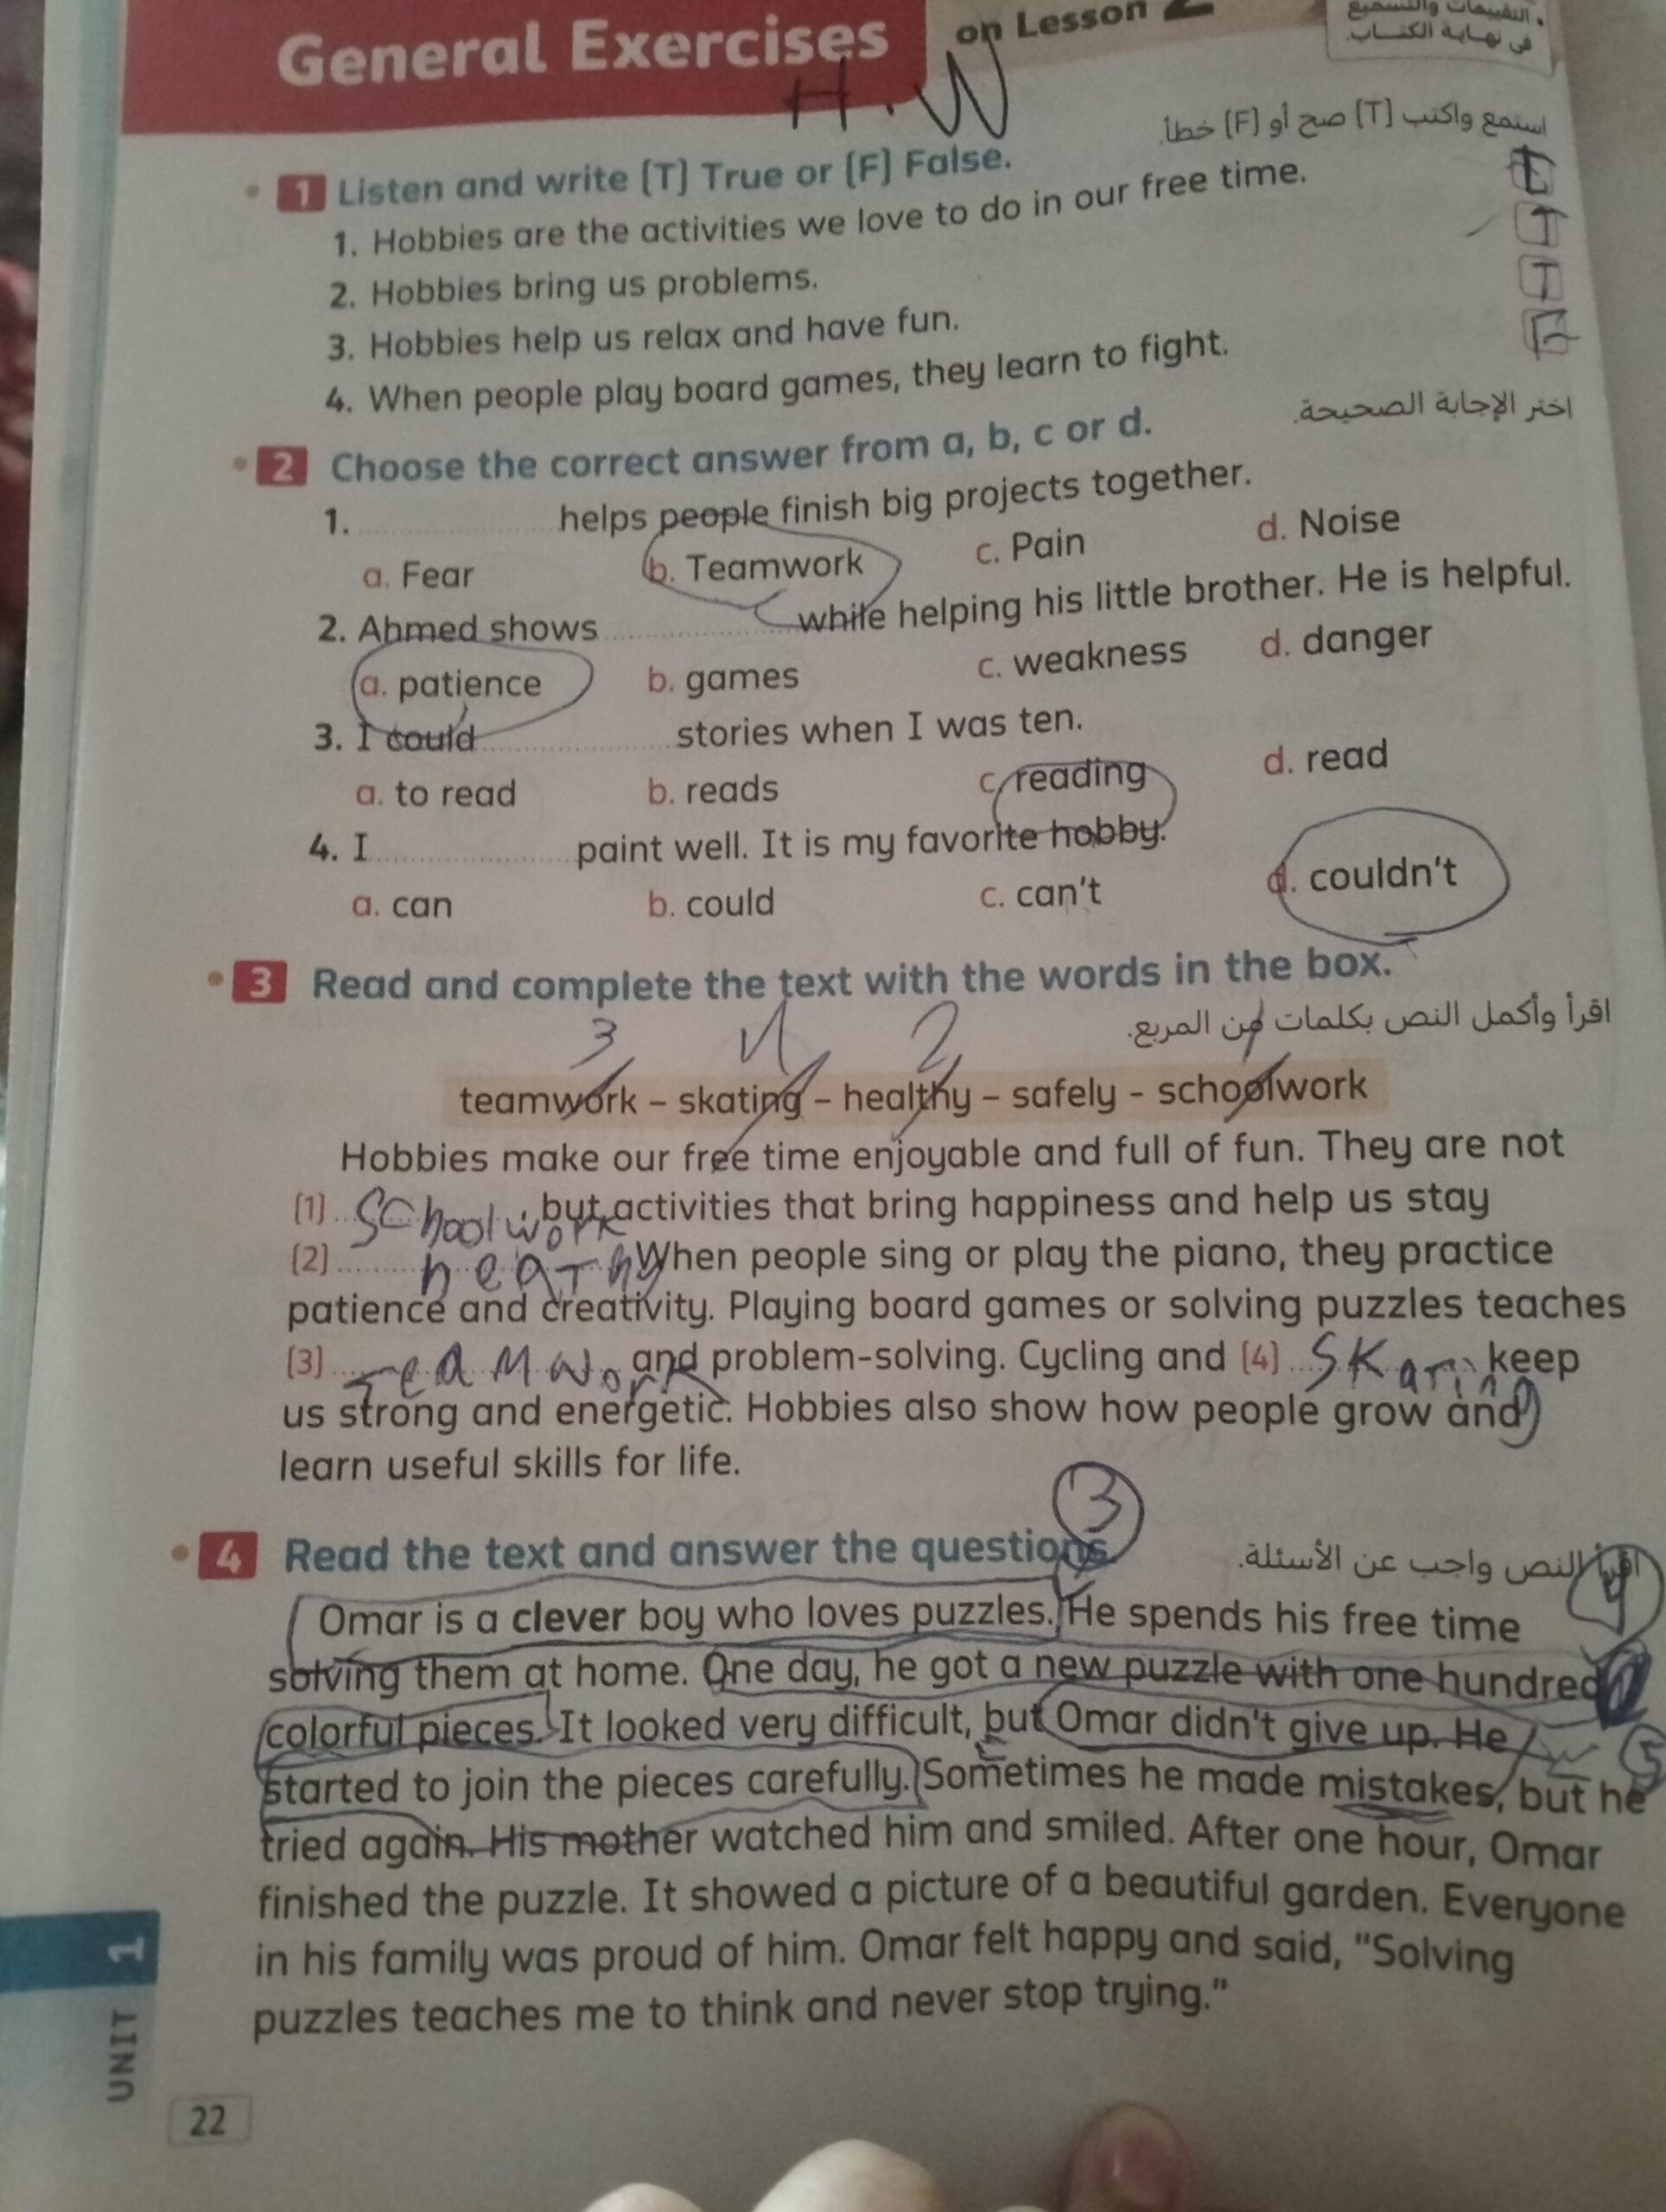 General Exercises on Lesson 2
التقييمات والتسميع
في نهاية الكتاب.
H.W
استمع واكتب (T) صح أو (F) خطأ.
1 Listen and write (T) True or (F) False.
1. Hobbies are the activities we love to do in our free time.
2. Hobbies bring us problems. T
3. Hobbies help us relax and have fun. T
4. When people play board games, they learn to fight. F
2 Choose the correct answer from a, b, c or d. اختر الإجابة الصحيحة.
1. .................... helps people finish big projects together.
a. Fear b. Teamwork c. Pain d. Noise
2. Ahmed shows .................... while helping his little brother. He is helpful.
a. patience b. games c. weakness d. danger
3. I could .................... stories when I was ten.
a. to read b. reads c. reading d. read
4. I .................... paint well. It is my favorite hobby.
a. can b. could c. can't d. couldn't
3 Read and complete the text with the words in the box.
اقرأ وأكمل النص بكلمات من المربع.
3 4 2 1
teamwork – skating – healthy – safely - schoolwork
Hobbies make our free time enjoyable and full of fun. They are not
(1) schoolwork, but activities that bring happiness and help us stay
(2) heathy When people sing or play the piano, they practice
patience and creativity. Playing board games or solving puzzles teaches
(3) Teamwork and problem-solving. Cycling and (4) skating keep
us strong and energetic. Hobbies also show how people grow and
learn useful skills for life.
3
4 Read the text and answer the questions. اقرأ النص واجب عن الأسئلة.
4
Omar is a clever boy who loves puzzles. He spends his free time
solving them at home. One day, he got a new puzzle with one hundred
colorful pieces. It looked very difficult, but Omar didn't give up. He
5
started to join the pieces carefully. Sometimes he made mistakes, but he
tried again. His mother watched him and smiled. After one hour, Omar
finished the puzzle. It showed a picture of a beautiful garden. Everyone
in his family was proud of him. Omar felt happy and said, "Solving
puzzles teaches me to think and never stop trying."
UNIT 1
22